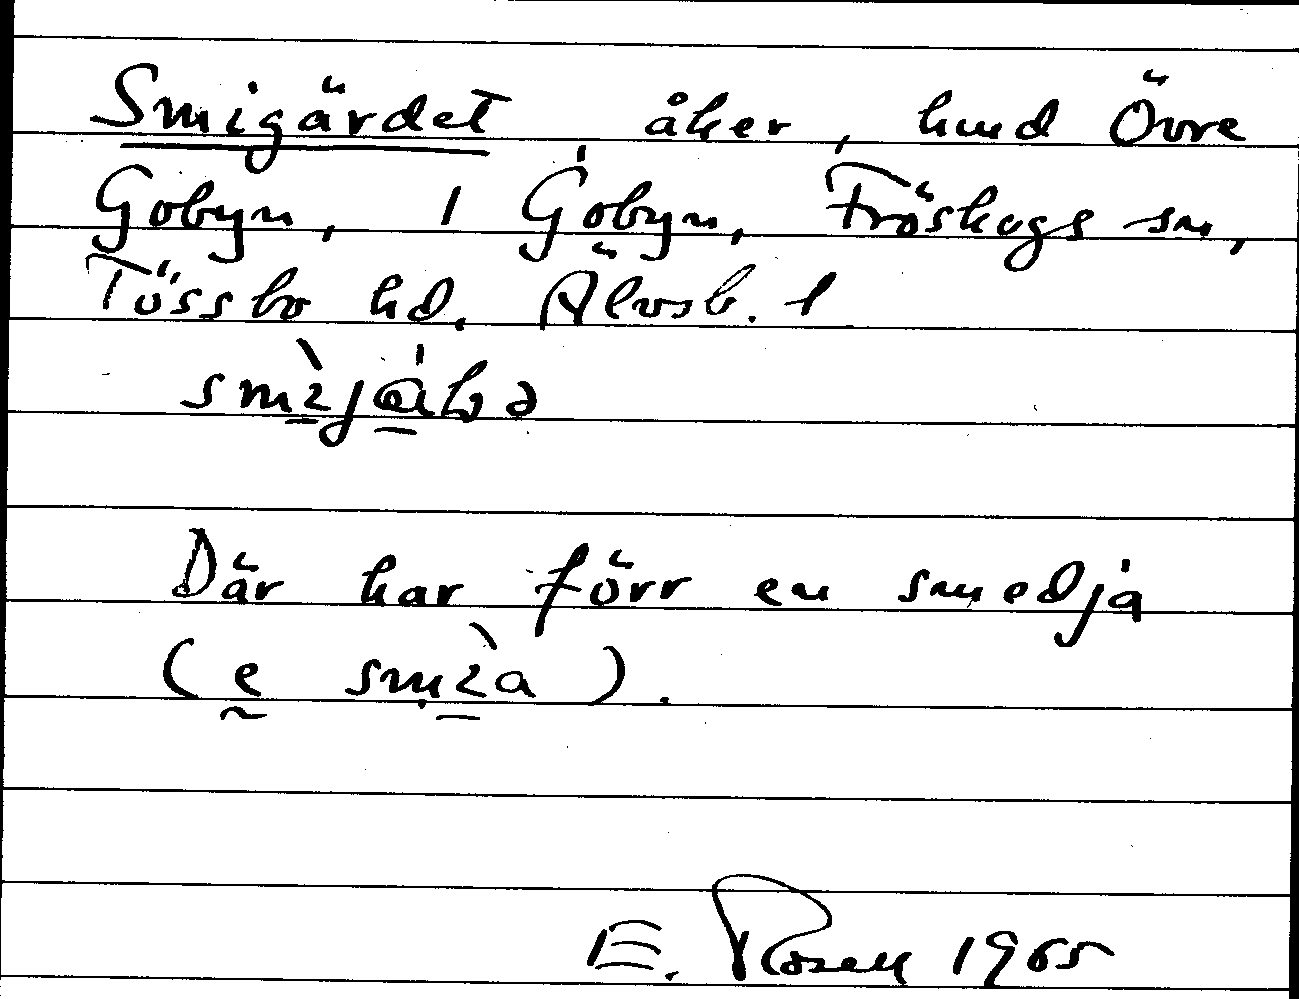 Smigärdet, åker, hmd Övre
Gobyn, 1 Gobyn, Fröskogs sn,
Tössbo hd. Älvsb. l
Där har förr en smedja
(e smia).
E. Rosell 1965